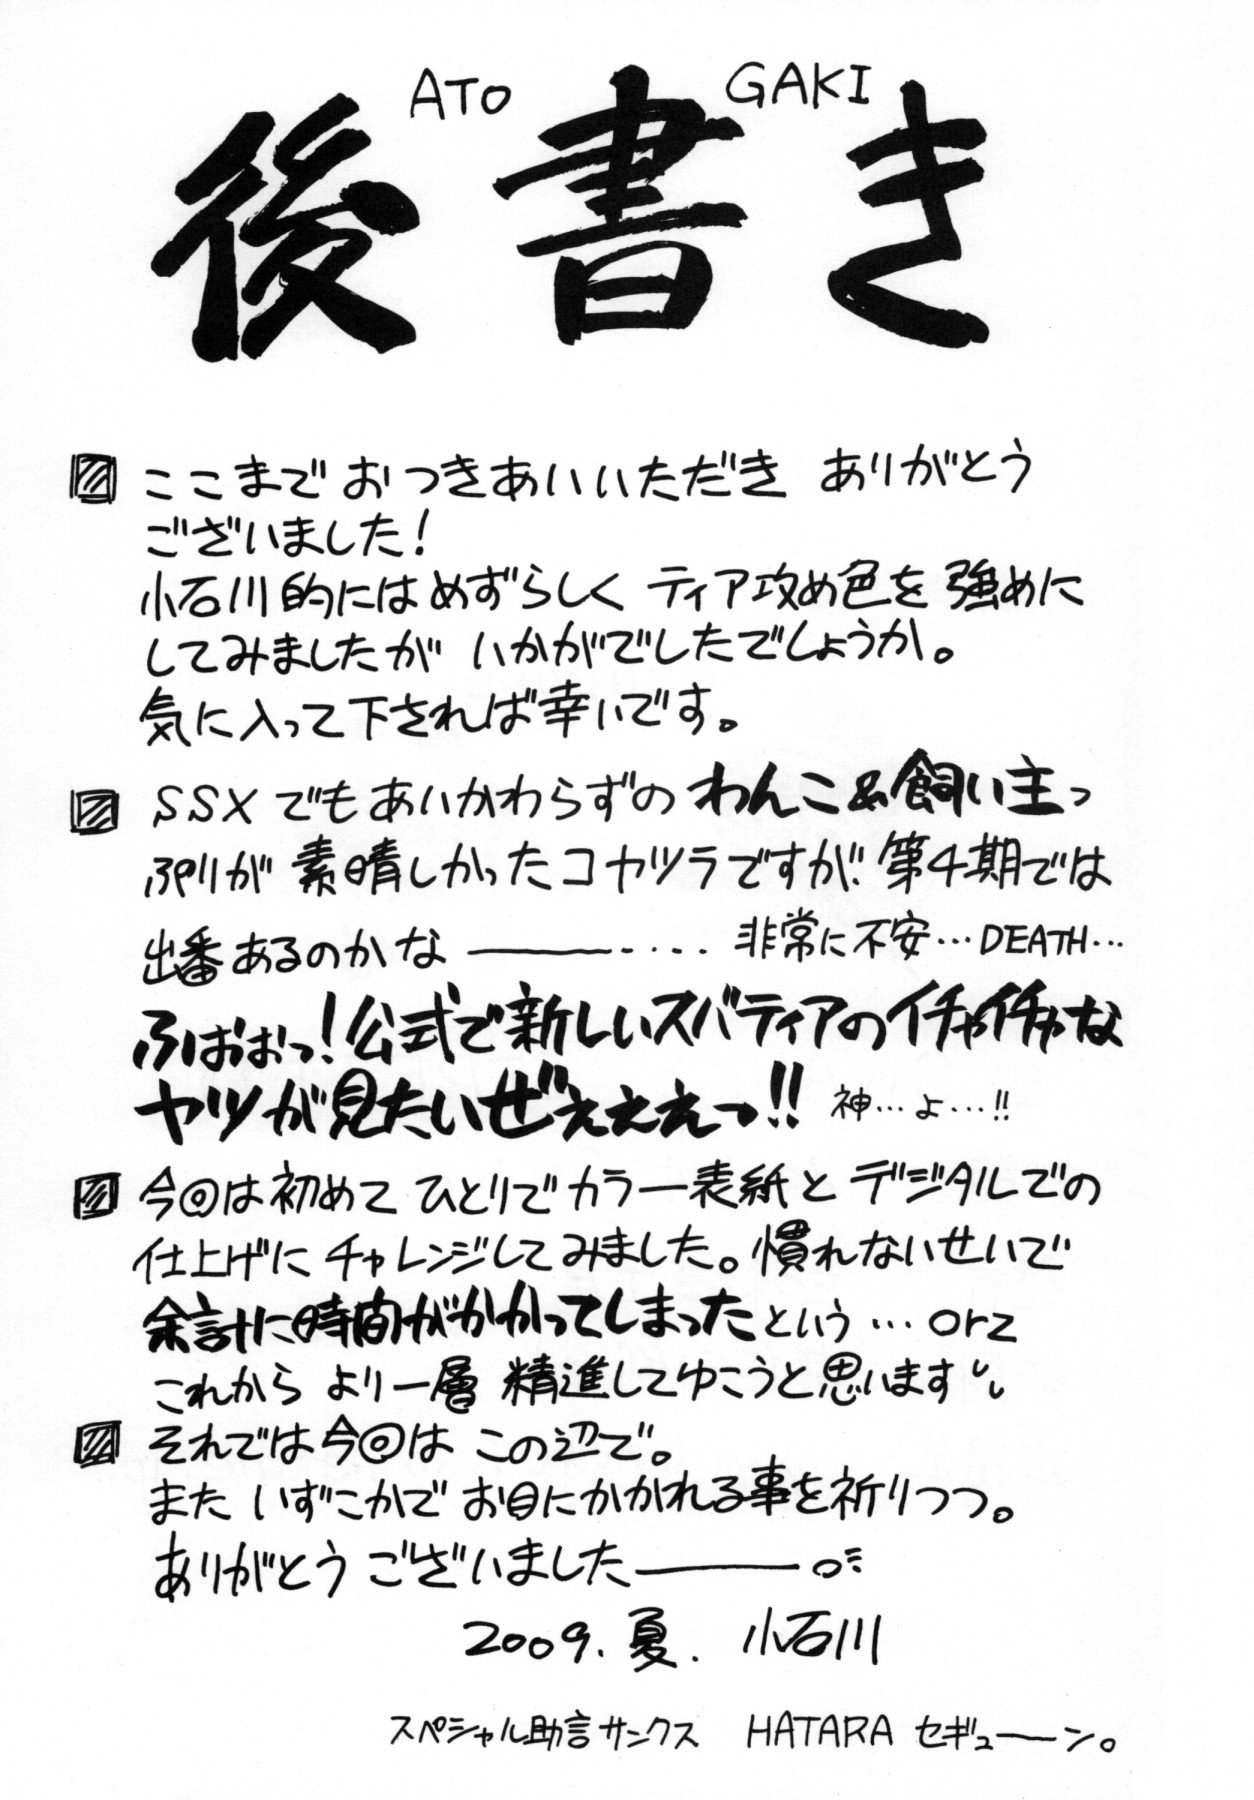 ATO GAKI
後書き
ここまでおつきあいいただき ありがとう
ございました!
小石川的にはめずらしく ティア攻め色を強めに
してみましたが いかがでしたでしょうか。
気に入って下されば幸いです。
SSXでもあいかわらずのわんこ&飼い主っ
ぷりが素晴しかったコヤツラですが!!第4期では
出番あるのかな――---- 非常に不安…DEATH…
ふおおおっ!公式で新しいスバティアのイチャイチャな
ヤツが見たいぜぇぇぇっ!! 神…よ…!!
今回は初めてひとりでカラー表紙とデジタルでの
仕上げにチャレンジしてみました。慣れないせいで
余計に時間がかかってしまったという…orz
これから より一層 精進してゆこうと思います
それでは今回は この辺で。
また いずこかで お目にかかれる事を祈りつつ。
ありがとうございました――
2009.夏. 小石川
スペシャル助言サンクス HATARA セギューーン。